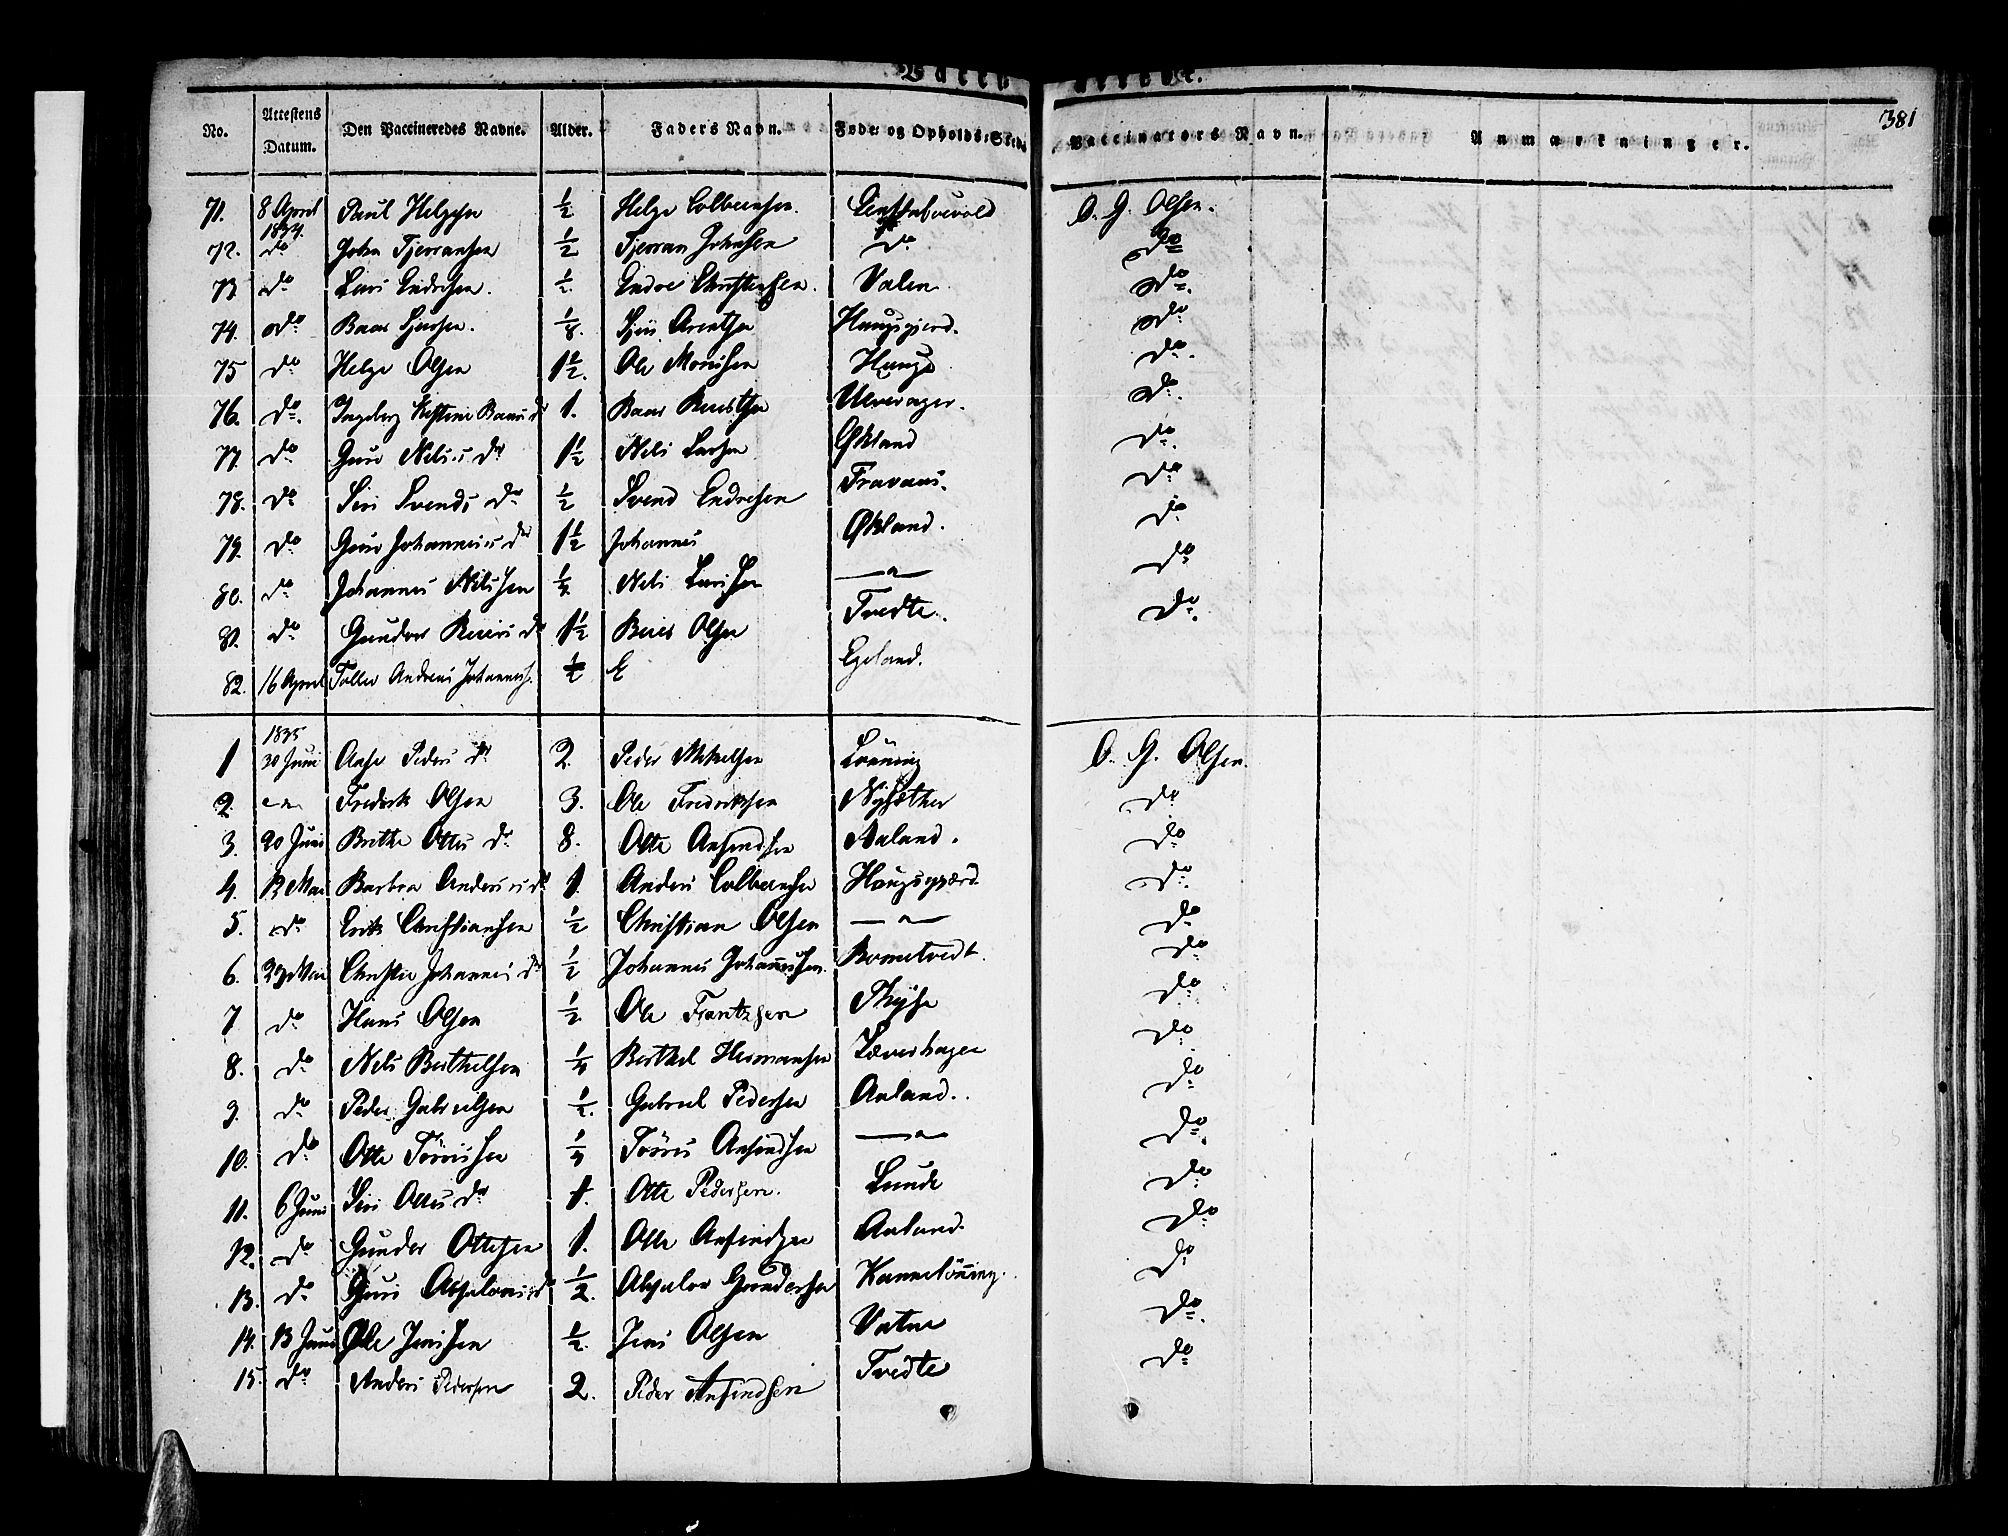 381
No. Attestens Datum. Den Vaccineredes Navne. Alder. Faders Navn. Føde og Opholds-Sted Vaccinators Navn. Anmærkninger.
71. 8 April 1834. Paul Helgesen 1/2 Helge Colbeensen. O. G. Olsen.
72. do John Tjerransen 1/2 Tjerran Johnsen do do
73 do Lars Endresen. 1/2 Endre Christensen. Valen do
74. do Baar 1/8. Arentsen Haugsgjerd. do
75 do Helge Olsen 1 1/2. Ole Monsen Hauge do
76. do. Ingeborg Kistine Baars dr 1. Baar Ulverager. do
77. do Guro Nels dr 1 1/2 Nels Larsen Økland do
78. do Siri Svends dr 1/2 Svend Endresen Fravans. do
79. do Guro Johannes dr 1 1/2 Johannes Økland. do
80. do Johannes Nilssen 1/4 Nels Larssen —"— do
81. do dr 1 1/2 Olsen Tvedte. do.
82. 16 April Tollev Andreas Johannes. 1/4 E Egeland.
1835
1 30 Juni Anse Peders dr 2. Peder Mikelsen Lönning O. G. Olsen.
2 —"— Frederik Olsen 3. Ole Fredriksen Nysether do
3. 20 Juni Brithe Ottes dr 8. Otte Ansendsen Aaland. do
4. 12 Mai Barbra Anders dr 1. Anders Colbeensen Haugsgjærd do
5. do Erik Christiansen 1/2 Christian Olsen —"— do
6. 29 Mai Christie Johannes dr 1/2 Johannes Johannessen. Rometvedt. do
7 do Hans Olsen 1/2. Ole Frantzsen do
8. do Nels Berthelsen 1/4 Berthel Hermansen Løverhagen do
9. do Peder Gabrielsen 1/2. Gabriel Pedersen Aaland. do
10. do Otte Törrissen 1/4 Törris Ansendsen —"— do
11. 6 Juni Siri Ottes dr 1. Otte Pedersen. Lunde do
12. do Gunder Ottesen 1. Otte Ansendsen Aaland do
13. do Guri Absalons dr 1/2. Absalon Gundersen Kannelönning. do
14. 13 Juni Ole Jenssen 1/2. Jens Olsen Vatne do
15. do Anders Pedersen 2. Peder Ansendsen Tvedte do